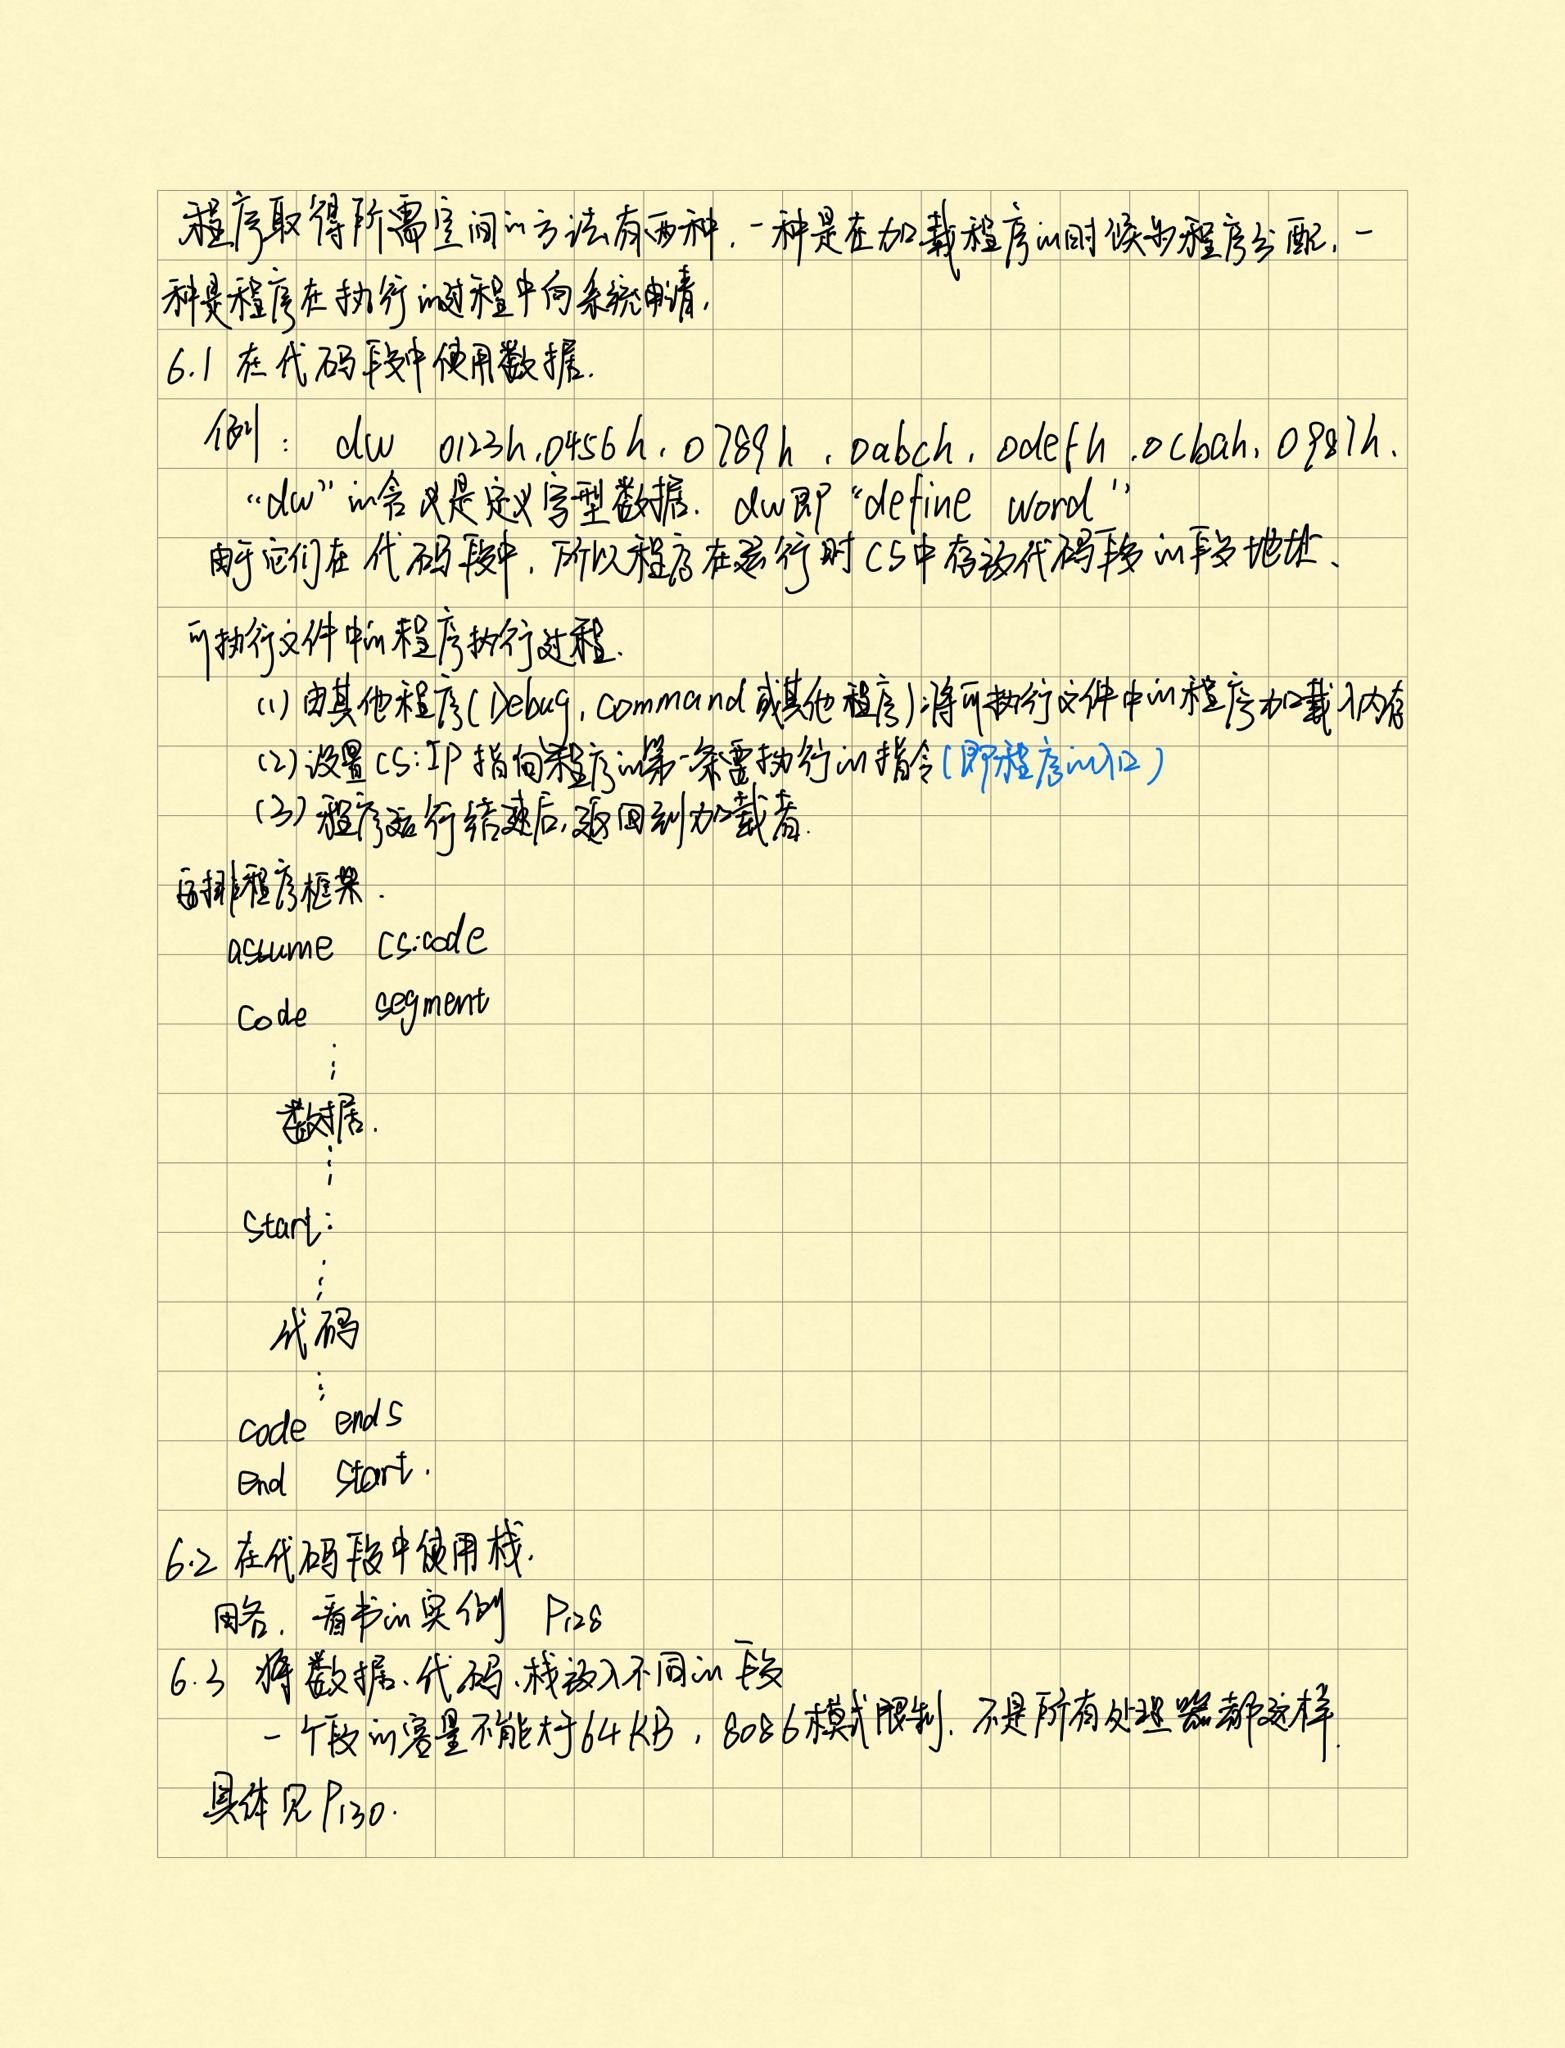 程序取得所需空间的方法有两种，一种是在加载程序的时候为程序分配，一
种是程序在执行的过程中向系统申请，
6.1 在代码段中使用数据.
例： dw 0123h,0456h,0789h,0abch,0defh,0cbah,0987h.
“dw”的含义是定义字型数据. dw即“define word”
由于它们在代码段中，所以程序在运行时CS中存放代码段的段地址、
可执行文件中的程序执行过程.
(1) 由其他程序(Debug, command或其他程序)将可执行文件中的程序加载入内存
(2) 设置CS:IP指向程序的第一条需执行的指令(即程序的入口)
(3) 程序运行结束后，返回到加载者.
程序框架.
assume cs:code
code segment
⋮
数据.
⋮
start:
⋮
代码
⋮
code ends
end start.
6.2 在代码段中使用栈.
略. 看书的实例 P128
6.3 将数据、代码、栈放入不同的段
一个段的容量不能大于64KB，8086模式限制. 不是所有处理器都这样.
具体见P130.